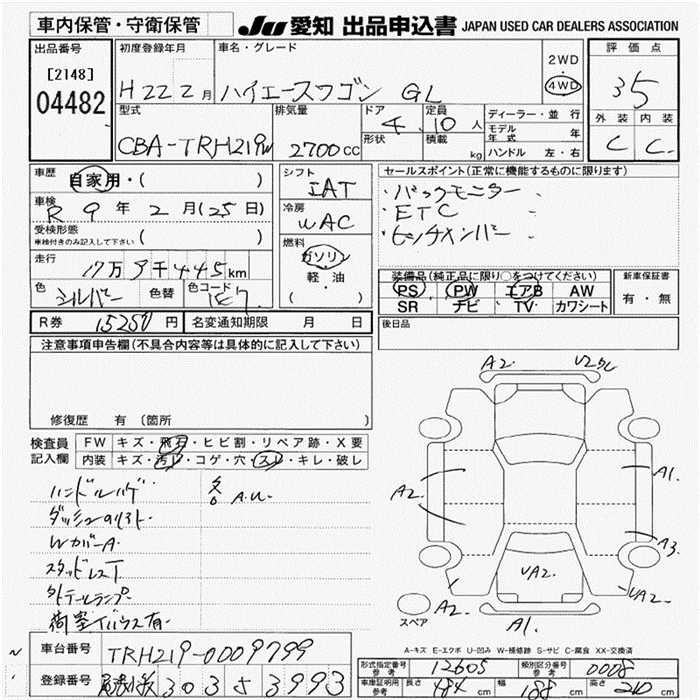 車内保管・守衛保管
JU 愛知 出品申込書 JAPAN USED CAR DEALERS ASSOCIATION
出品番号
[2148]
04482
初度登録年月
H22 2月
車名・グレード
ハイエースワゴン GL
2WD
4WD
評価点
35
外装 内装
C C
型式
CBA-TRH219W
排気量
2700CC
ドア
4
形状
定員
10人
積載
kg
ディーラー・並行
モデル年式 年
ハンドル 左・右
車歴
自家用・( )
車検
R9年2月(25日)
受検形態
車検付きのみ記入して下さい ( )
走行
17万9千445km
色
シルバー
色替
色コード
1E7
シフト
IAT
冷房
WAC
燃料
ガソリン
軽・油
( )
セールスポイント(正常に機能するものに限ります)
・バックモニター
・ETC
・
装備品(純正品に限り○をつけてください)
PS PW エアB AW
SR ナビ TV カワシート
新車保証書
有・無
後日品
R券 15250円 名変通知期限 月 日
注意事項申告欄(不具合内容等は具体的に記入して下さい)
修復歴 有 (箇所 )
検査員記入欄
FW キズ・飛石・ヒビ割・リペア跡・X要
内装 キズ・汚レ・コゲ・穴・スレ・キレ・破レ
ハンドルハゲ
A.U.
Wカバー A
スタッドレスT
外テールランプ
有
A2. A1. A2. A3. A2. UA2. UA2. A1.
スペア
A-キズ E-エクボ U-凹み W-補修跡 S-サビ C-腐食 XX-交換済
車台番号
TRH219-0009799
登録番号
303 3993
形式指定番号 参考
12605
類別区分番号 参考
0008
車庫証明用 参考
長さ 484 cm 幅 188 cm 高さ 210 cm